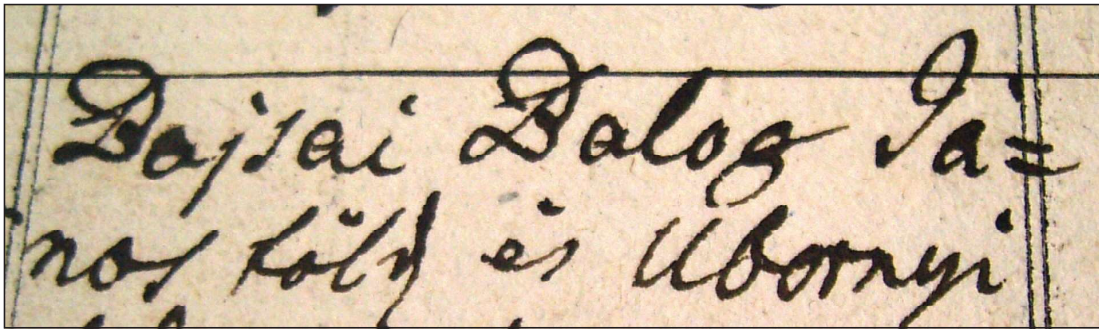 Bajsai Balog Já=
nos földm és Ubornyi